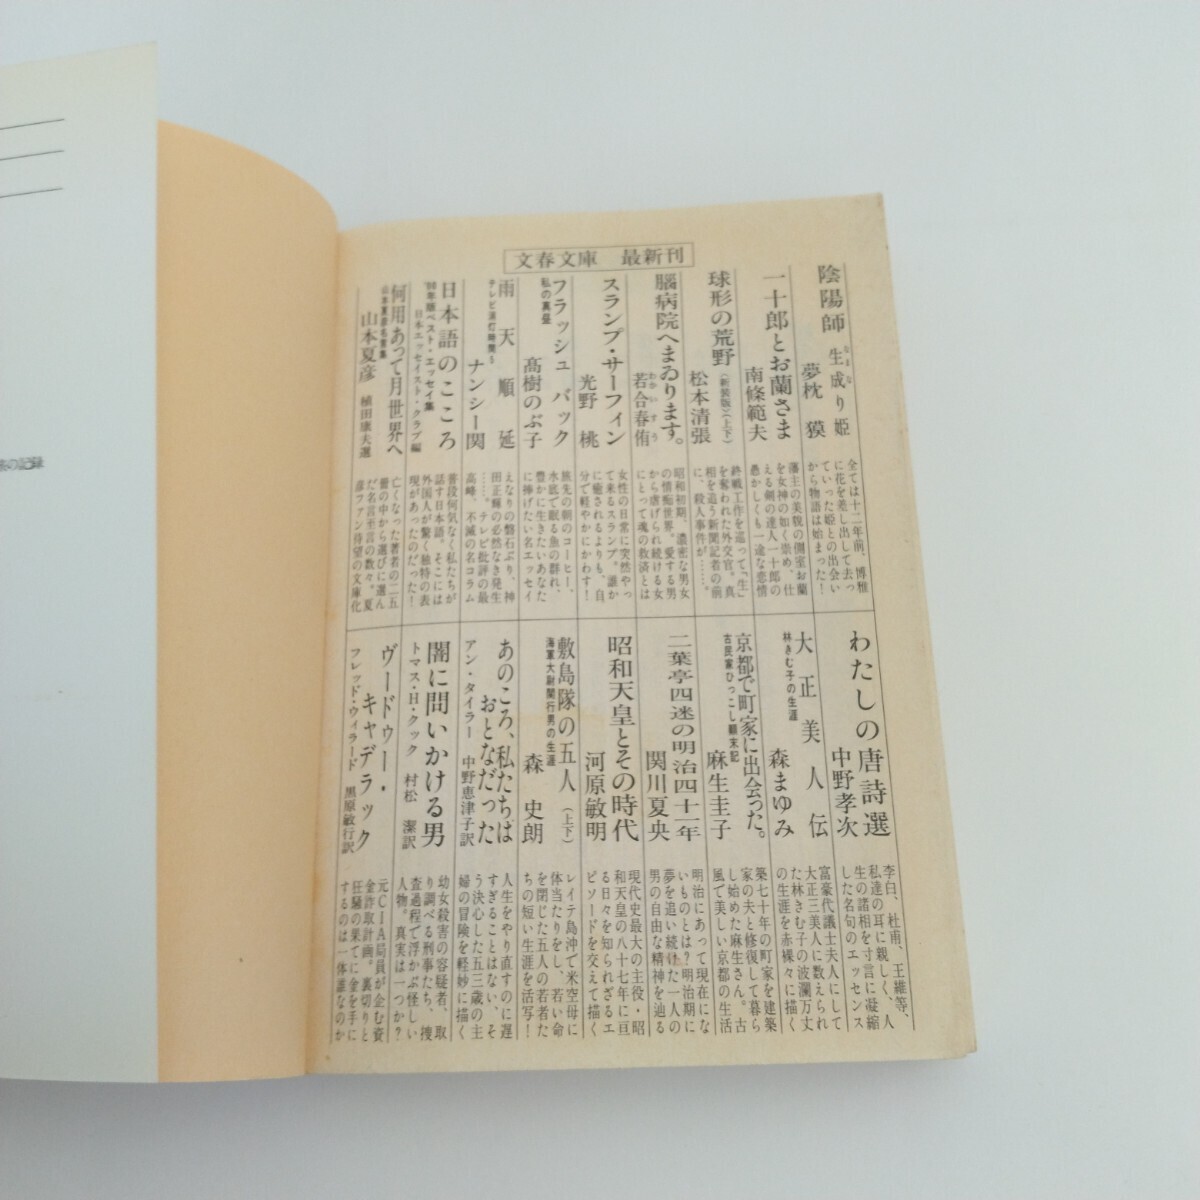 文春文庫　最新刊
陰陽師　生成り姫
なまな
夢枕　獏
全ては十二年前、博雅
に花を差し出して去っ
ていった姫との出会い
から物語は始まった！
一十郎とお蘭さま
南條範夫
藩主の美貌の側室お蘭
を女神の如く崇め、仕
える剣の達人一十郎の
愚かしくも一途な悲情
球形の荒野
〈新装版〉（上下）
松本清張
終戦工作を巡って「生」
を奪われた外交官。真
相を追う新聞記者の前
に、殺人事件が……。
脳病院へまゐります。
若合春侑
わかいすう
昭和初期、濃密な男女
の情痴世界。愛する男
から虐げられ続ける女
にとって魂の救済とは
スランプ・サーフィン
光野　桃
女性の日常に突然やっ
て来るスランプ。誰か
に癒されるよりも、自
分で軽やかにかわす！
フラッシュ　バック
私の真昼
髙樹のぶ子
旅先の朝のコーヒー、
水底で眠る魚の群れ、
豊かに生きたいあなた
に捧げたい名エッセイ
雨天順延
テレビ消灯時間5
ナンシー関
えなりの磐石ぶり、神
田正輝の必然なき発生
……。テレビ批評の最
高峰、不滅の名コラム
日本語のこころ
'00年版ベスト・エッセイ集
日本エッセイスト・クラブ編
普段何気なく私たちが
話す日本語。そこには
外国人が驚く独特の表
現があったのだった！
何用あって月世界へ
山本夏彦名言集
山本夏彦　植田康夫選
亡くなった著者の二五
冊の中から選びに選ん
だ名言至言の数々。夏
彦ファン待望の文庫化
わたしの唐詩選
中野孝次
李白、杜甫、王維等、
私達の耳に親しく、人
生の諸相を寸言に凝縮
した名句のエッセンス
大正美人伝
林きむ子の生涯
森まゆみ
富豪代議士夫人にして
大正三美人に数えられ
た林きむ子の波瀾万丈
の生涯を赤裸々に描く
京都で町家に出会った。
古民家ひっこし顛末記
麻生圭子
築七十年の町家を建築
家の夫と修復して暮ら
し始めた麻生さん。古
風で美しい京都の生活
二葉亭四迷の明治四十一年
関川夏央
明治にあって現在にな
いものとは？明治期に
夢を追い続けた一人の
男の自由な精神を辿る
昭和天皇とその時代
河原敏明
現代史最大の主役・昭
和天皇の八十七年に亘
る日々を知られざるエ
ピソードを交えて描く
敷島隊の五人
（上下）
海軍大尉関行男の生涯
森　史朗
レイテ島沖で米空母に
体当たりをし、若い命
を閉じた五人の若者た
ちの短い生涯を活写！
あのころ、私たちは
おとなだった
アン・タイラー　中野恵津子訳
人生をやり直すのに遅
すぎることはない、そ
う決心した五三歳の主
婦の冒険を軽妙に描く
闇に問いかける男
トマス・H・クック　村松　潔訳
幼女殺害の容疑者、取
り調べる刑事たち、捜
査過程で浮かぶ怪しい
人物。真実は一つか？
ヴードゥー・
キャデラック
フレッド・ウィラード　黒原敏行訳
元ＣＩＡ局員が企む資
金詐取計画。裏切りと
狂騒の果てに金を手に
するのは一体誰なのか
の記録